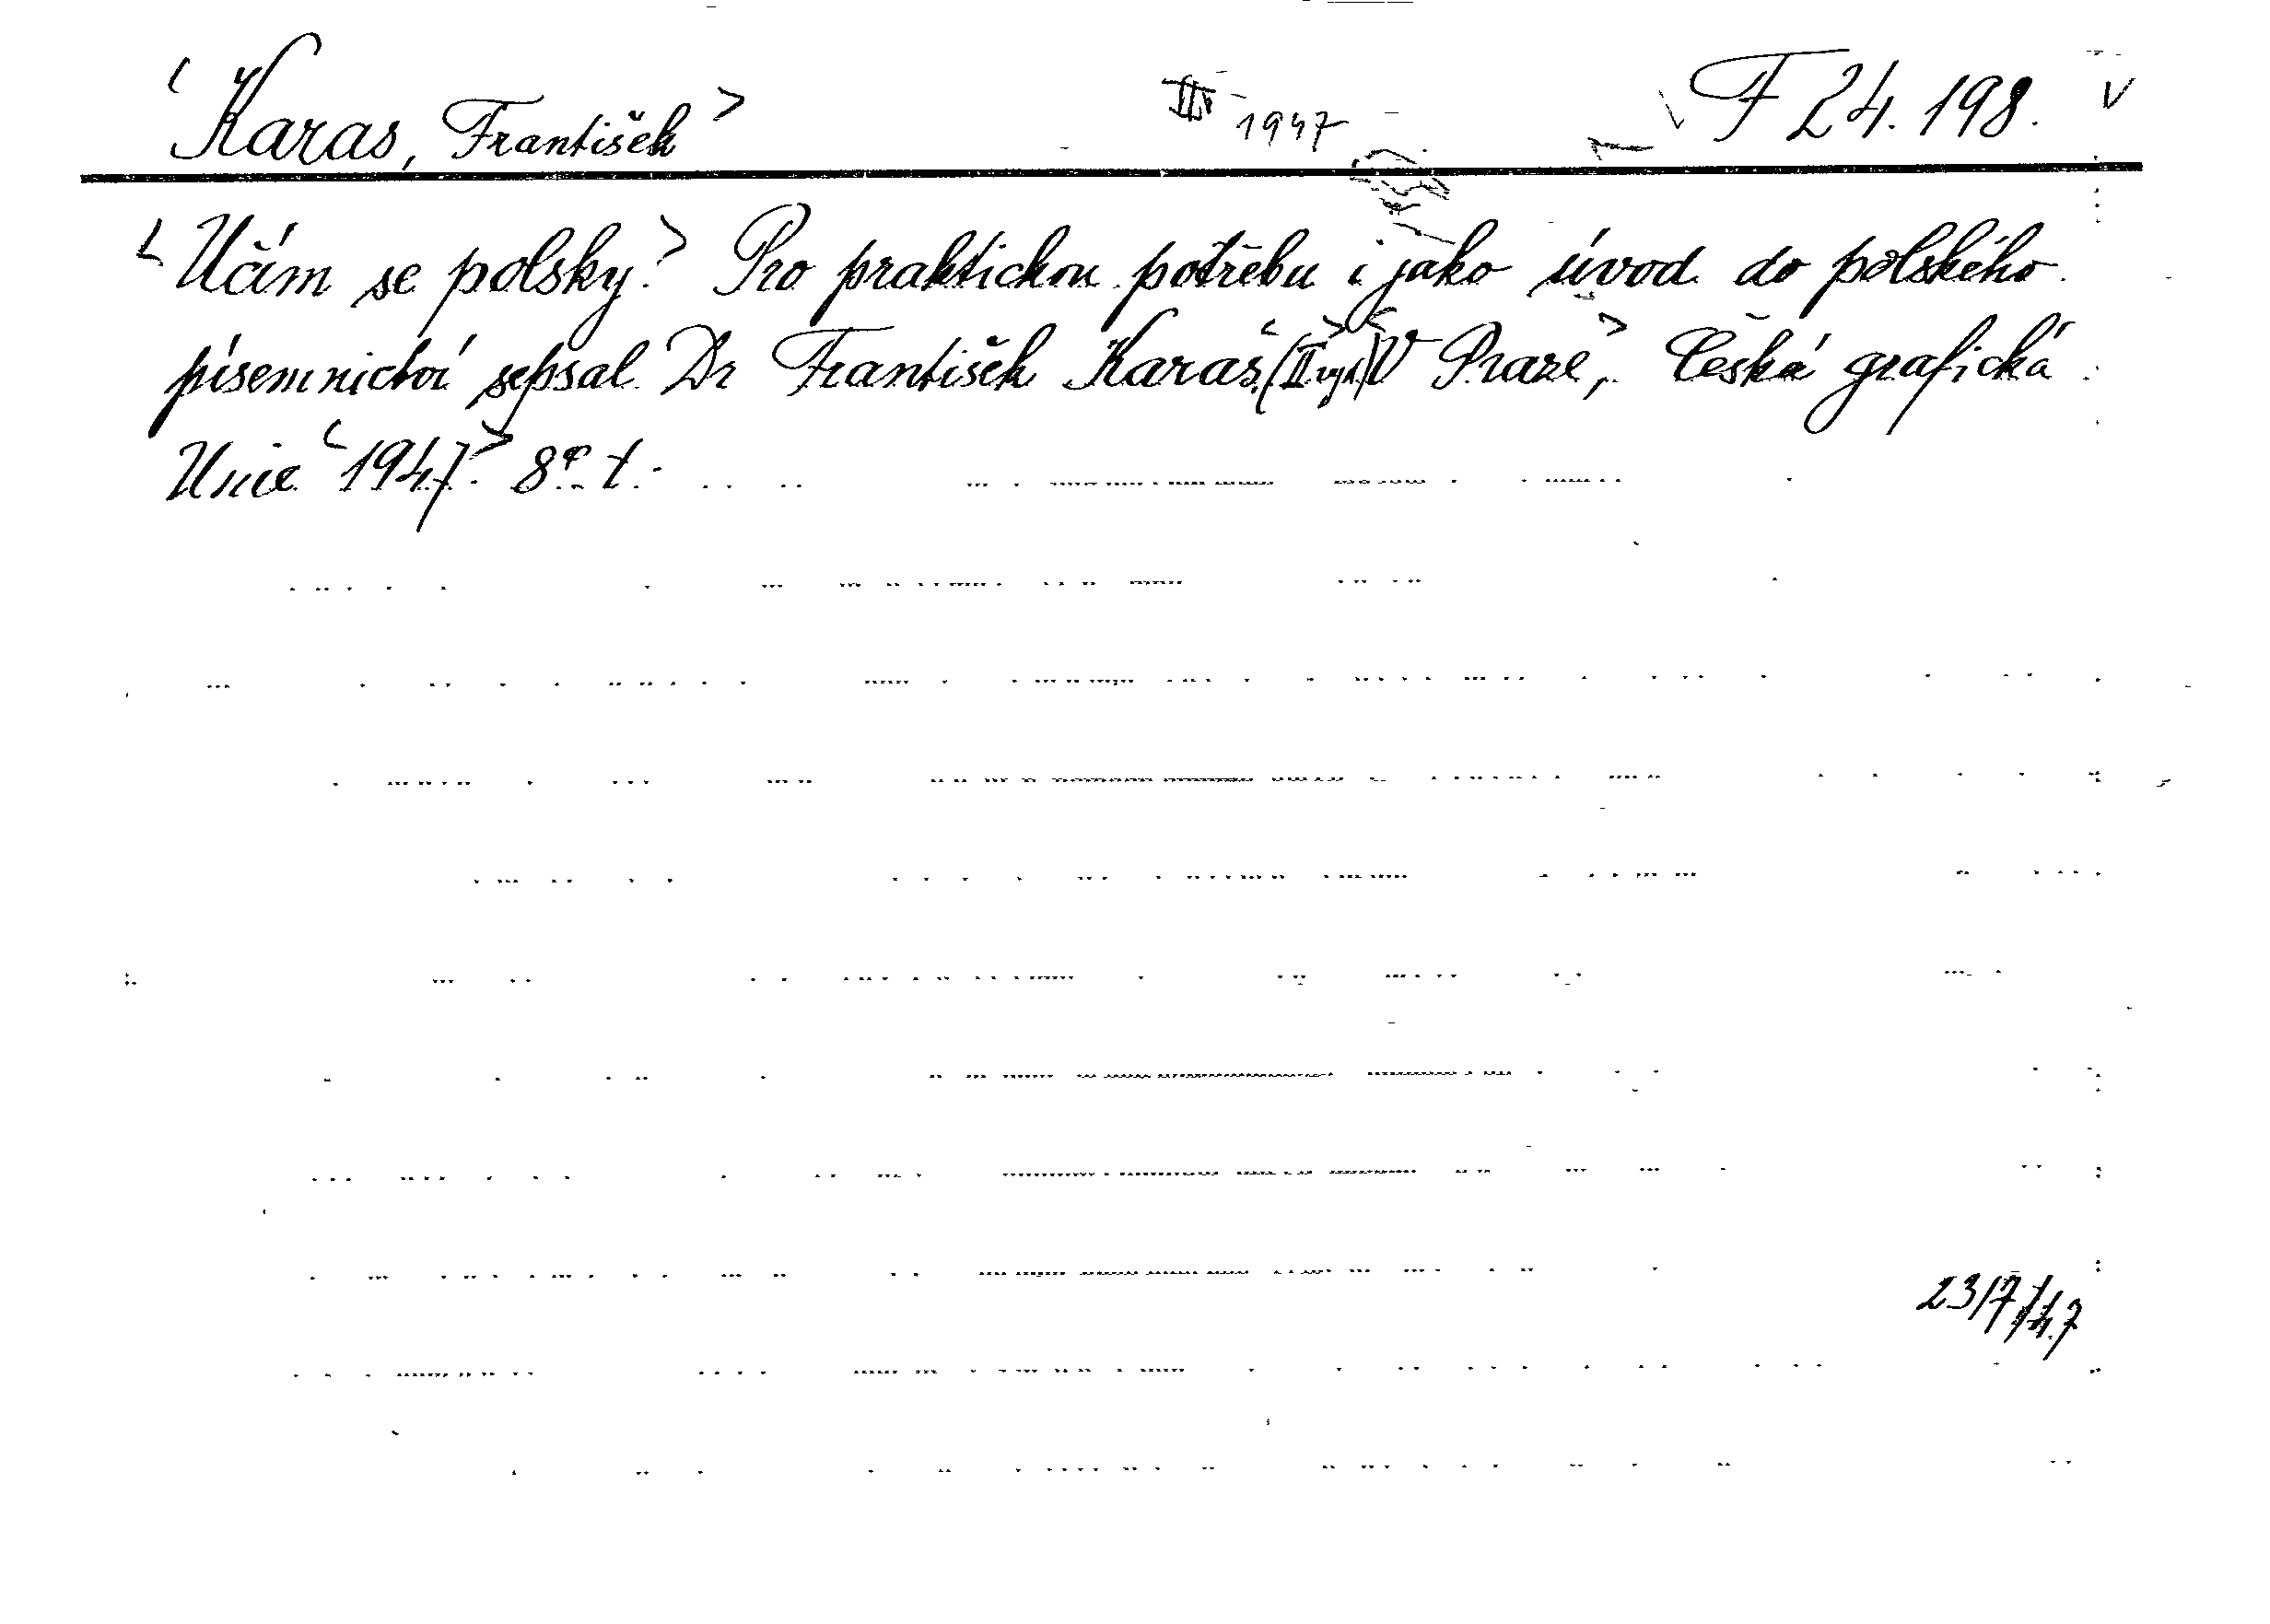 Karas, František II. 1947 F 24.198.
Učím se polsky. Pro praktickou potřebu i jako úvod do polského
písemnictví sepsal Dr František Karas. (II. vyd.) V Praze, Česká grafická
Unie 1947. 8° t.
23/7/47